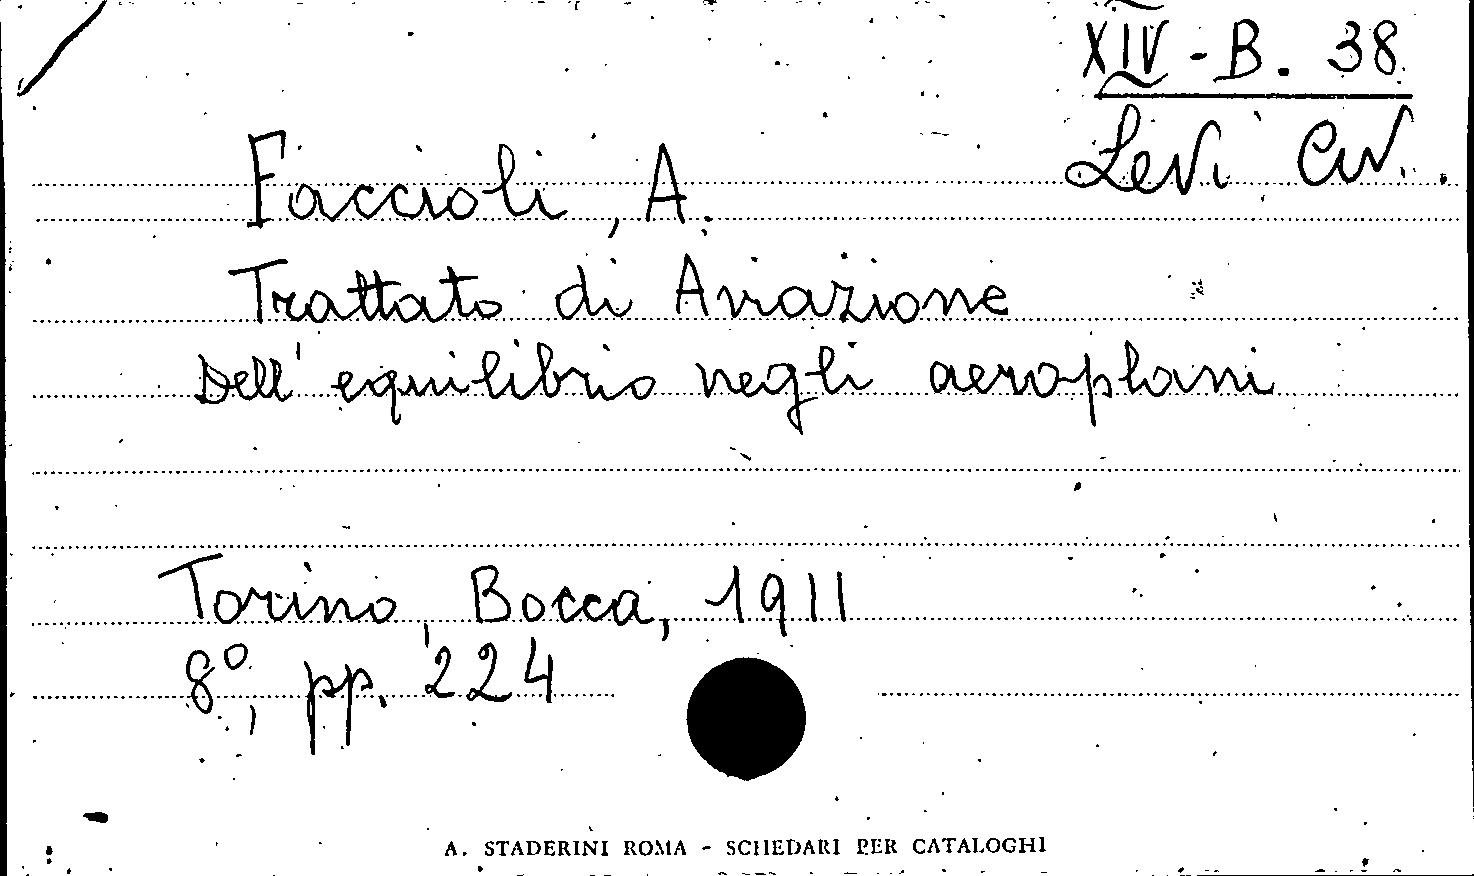 XIV - B. 38
Levi Civ.
Faccioli, A.
Trattato di Aviazione
Dell' equilibrio negli aeroplani
Torino, Bocca, 1911
8°, pp. 224
A. STADERINI ROMA - SCHEDARI PER CATALOGHI